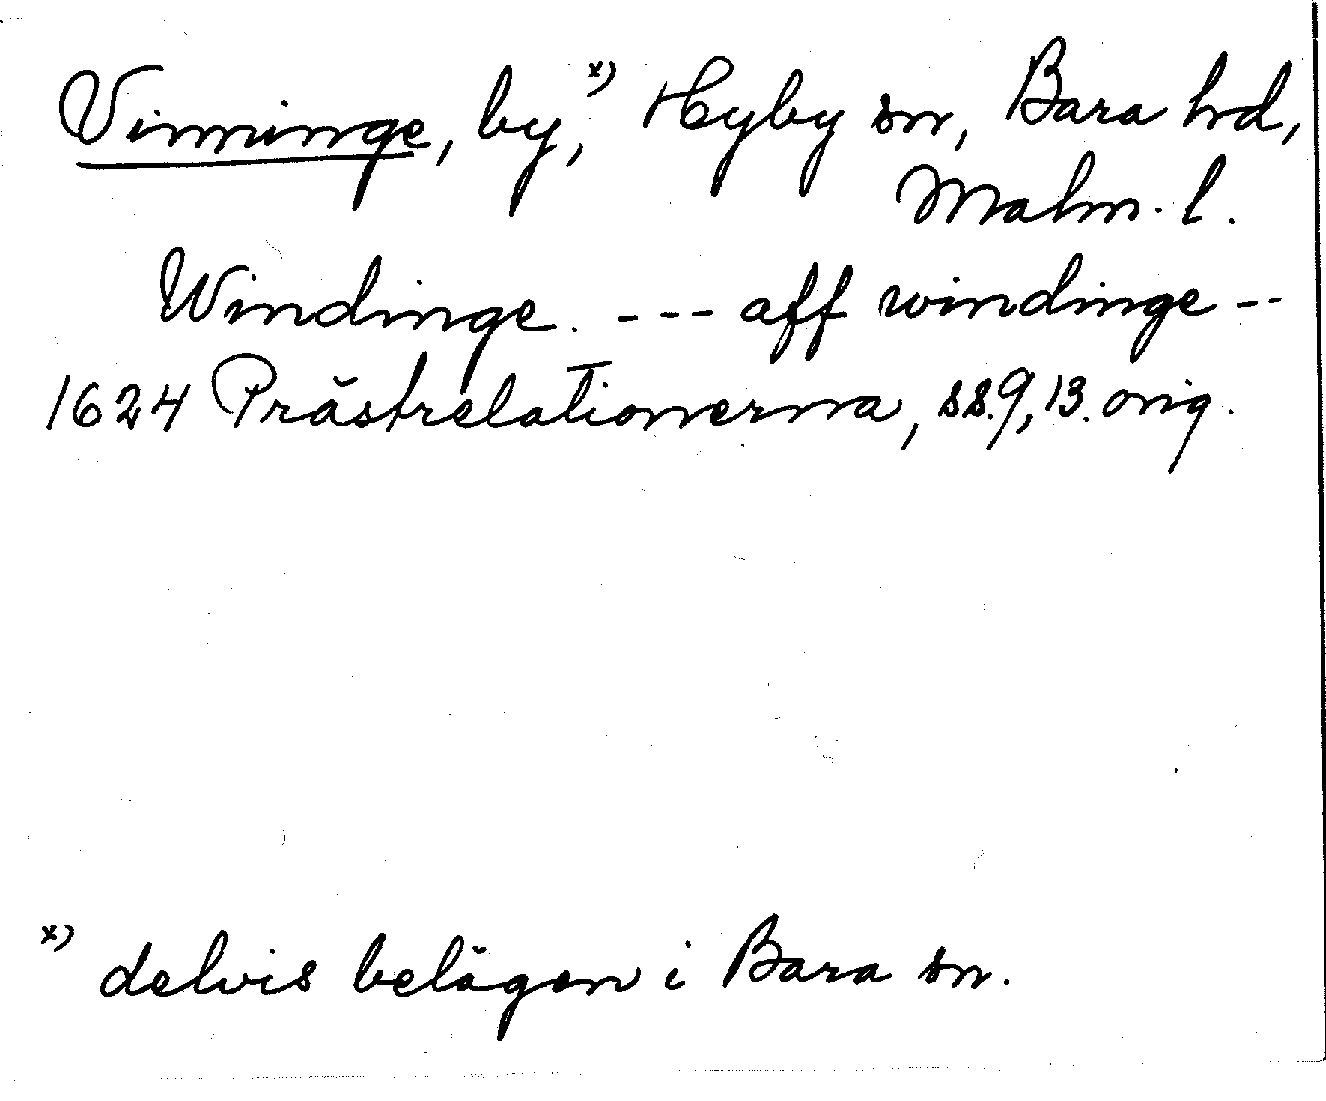 Vinninge, by,x) Hyby sn, Bara hd,
Malm. l.
Windinge. --- aff windinge --
1624 Prästrelationerna, ss. 9, 13. orig.
x) delvis belägen i Bara sn.